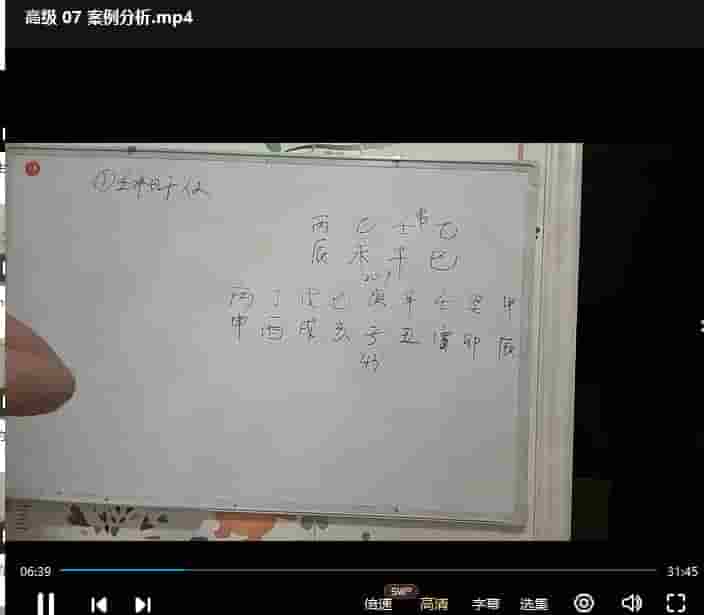 高级 07 案例分析.mp4
丙 乙 壬 乙
辰 未 午 巳
丙 丁 戊 己 庚 辛 壬 癸 甲
申 酉 戌 亥 子 丑 寅 卯 辰
43
06:39
31:45
倍速
SWP
高清
字幕
选集